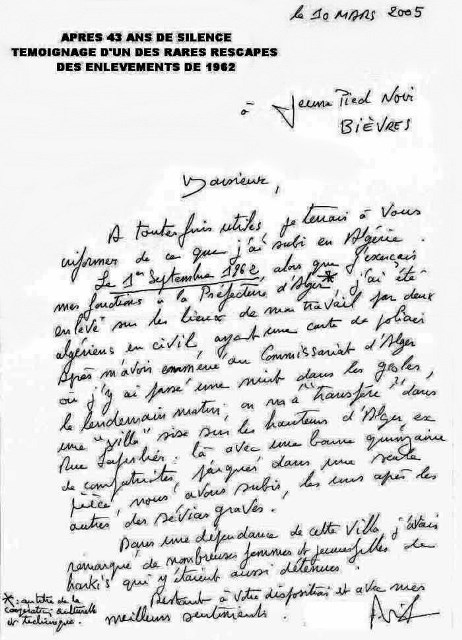 le 10 MARS 2005
APRES 43 ANS DE SILENCE
TEMOIGNAGE D'UN DES RARES RESCAPES
DES ENLEVEMENTS DE 1962
à Jeune Pied Noir
BIÈVRES
Monsieur,
A toutes fins utiles je tenais à vous
informer de ce que j'ai subi en Algérie.
Le 1er Septembre 1962, alors que j'exerçais
mes fonctions à la Préfecture d'Alger*, j'ai été
enlevé sur les lieux de mon travail par deux
algériens en civil ayant une carte de policier
Après m'avoir emmené au Commissariat d'Alger
où j'y ai passé une nuit dans les geôles,
le lendemain matin on m'a "transféré" dans
une "villa" sise sur les hauteurs d'Alger ex
Rue : là avec une bonne quinzaine
de compatriotes, parqués dans une seule
pièce, nous avons subi, les uns après les
autres des sévices graves.
Dans une dépendance de cette villa j'avais
remarqué de nombreuses femmes et jeunes filles de
harkis qui y étaient aussi détenues.
Restant à votre disposition et avec mes
meilleurs sentiments.
*: au titre de la
coopération culturelle
et technique.